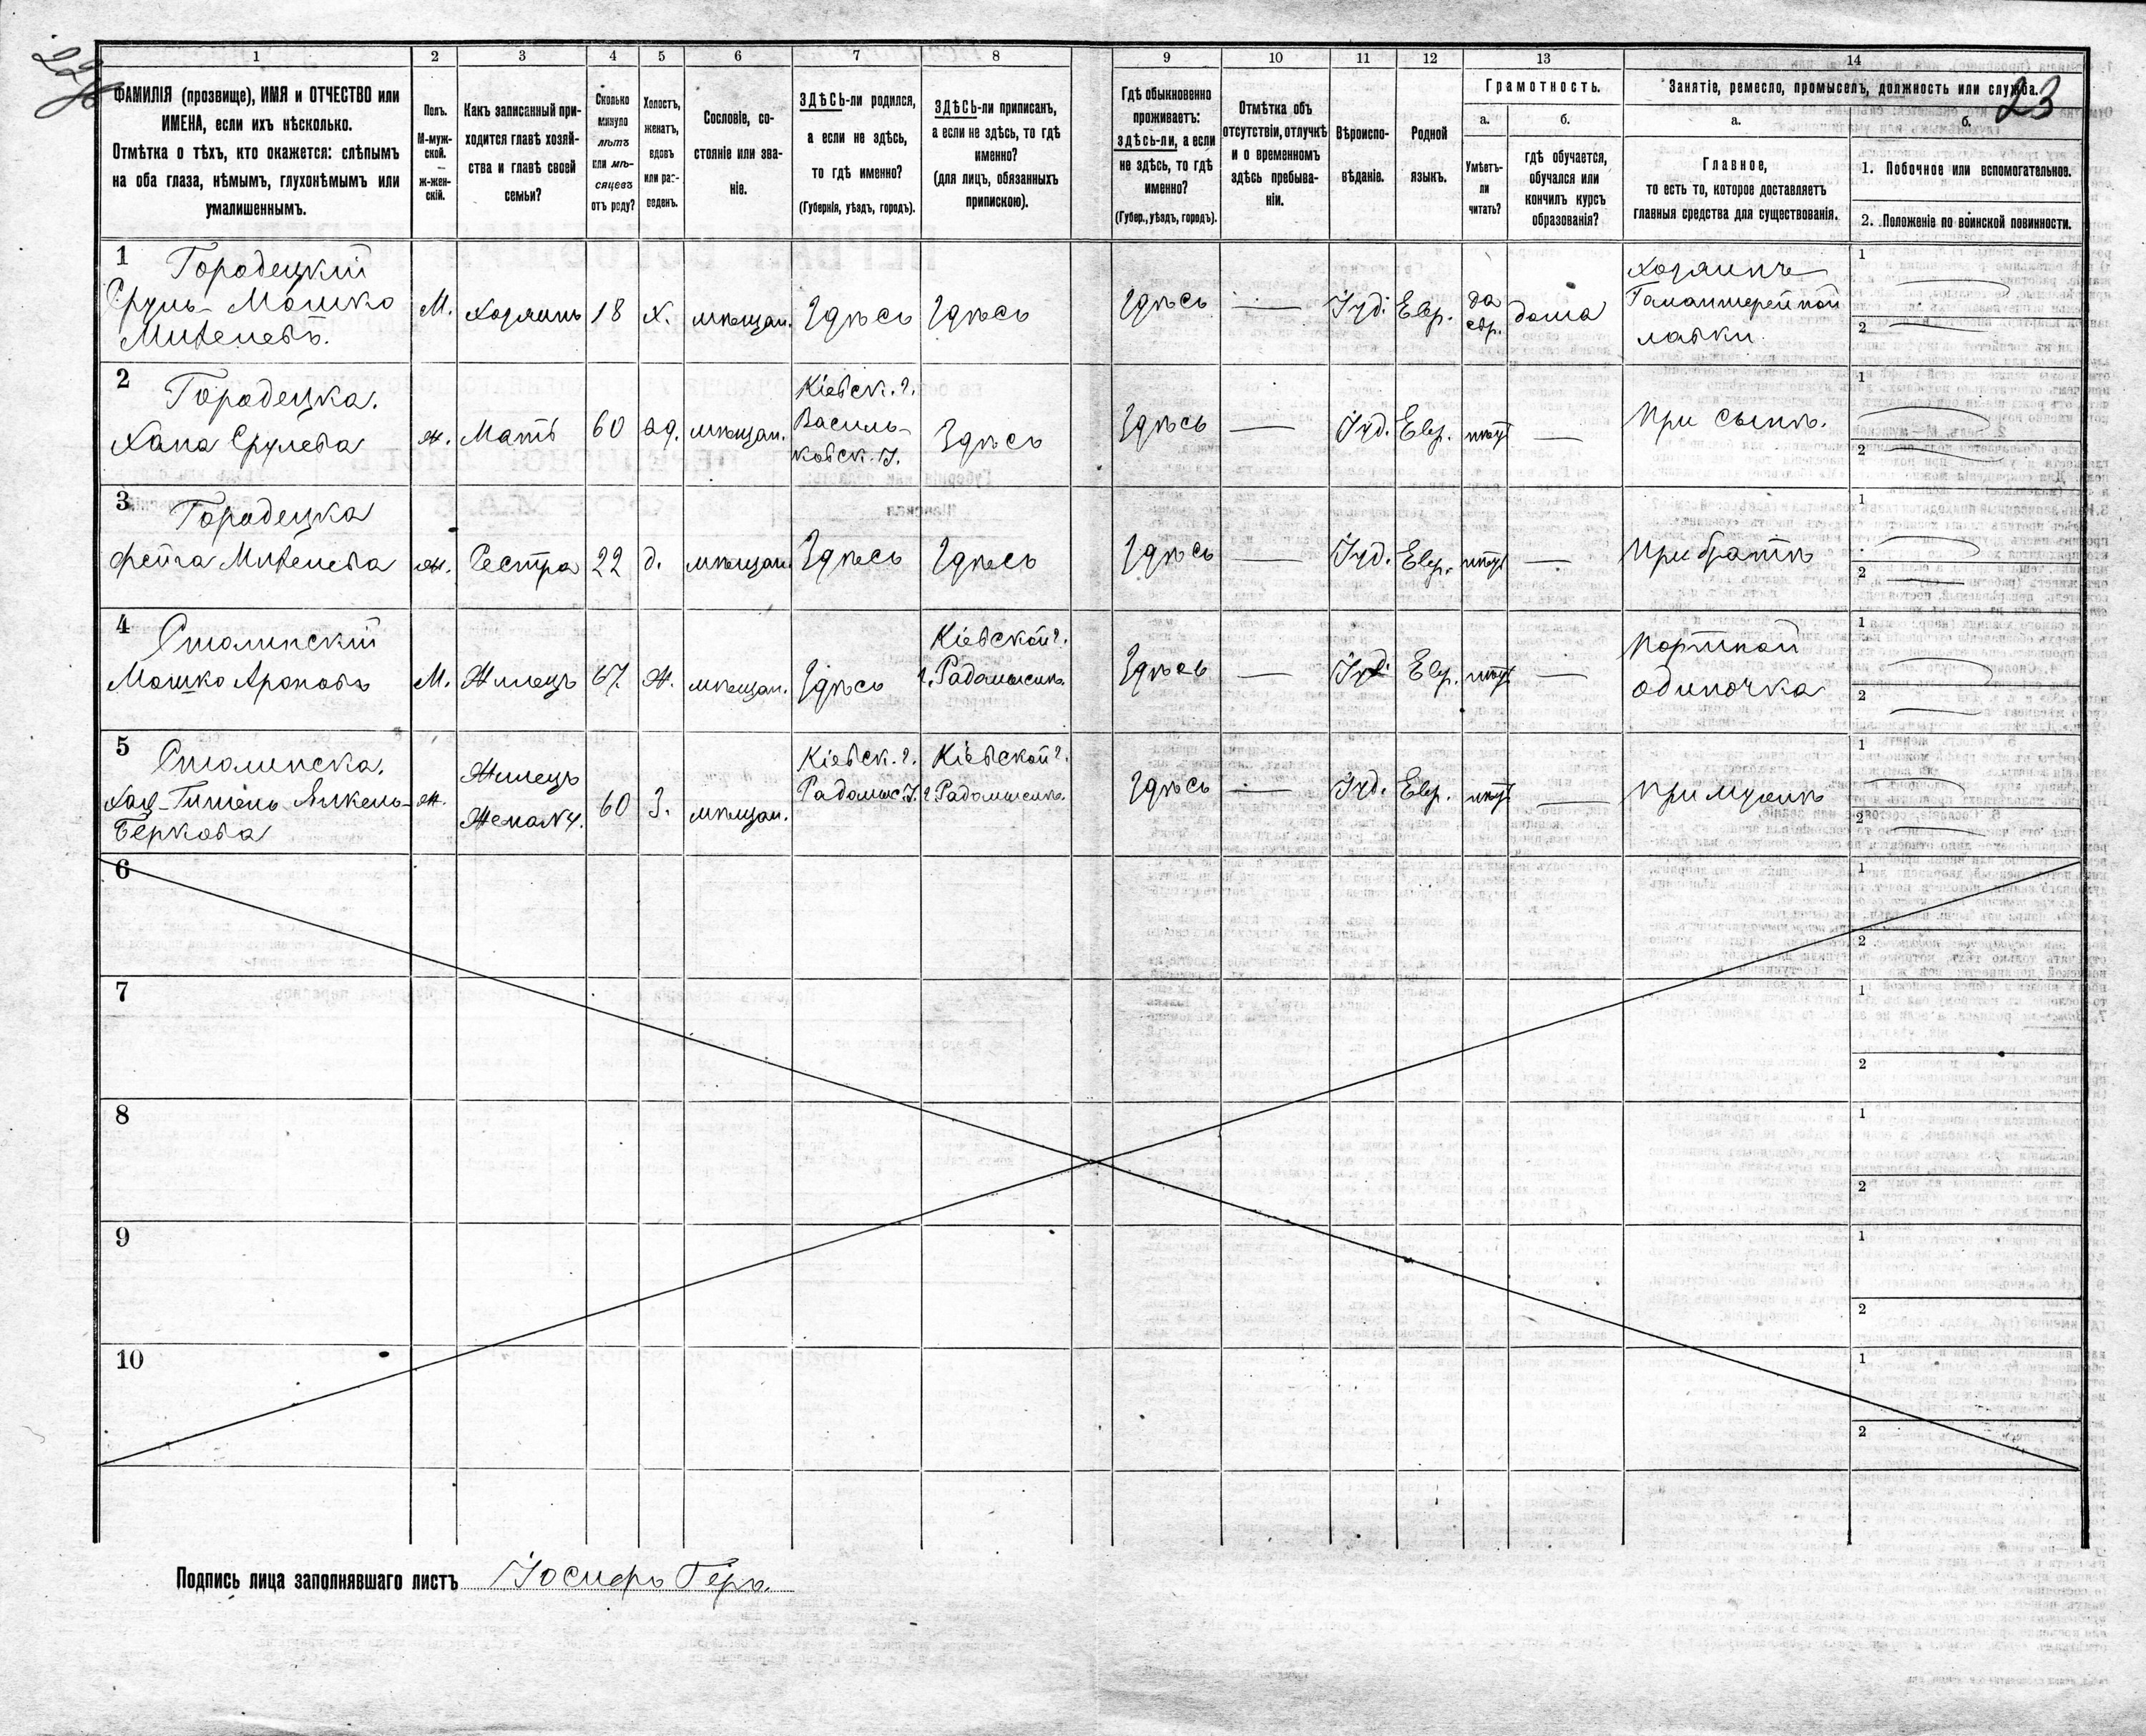 23
1
2
3
4
5
6
7
8
9
10
11
12
13
14
ФАМИЛІЯ (прозвище), ИМЯ и ОТЧЕСТВО или
ИМЕНА, если ихъ нѣсколько.
Отмѣтка о тѣхъ, кто окажется: слѣпымъ
на оба глаза, нѣмымъ, глухонѣмымъ или
умалишеннымъ.
Полъ.
М-муж-
ской.
ж-жен-
скій.
Какъ записанный при-
ходится главѣ хозяй-
ства и главѣ своей
семьи?
Сколько
минуло
лѣтъ
или мѣ-
сяцевъ
отъ роду?
Холостъ,
женатъ,
вдовъ
или раз-
веденъ.
Сословіе, со-
стояніе или зва-
ніе.
ЗДѢСЬ-ли родился,
а если не здѣсь,
то гдѣ именно?
(Губернія, уѣздъ, городъ).
ЗДѢСЬ-ли приписанъ,
а если не здѣсь, то гдѣ
именно?
(для лицъ, обязанныхъ
припискою).
Гдѣ обыкновенно
проживаетъ:
здѣсь-ли, а если
не здѣсь, то гдѣ
именно?
(Губер., уѣздъ, городъ).
Отмѣтка объ
отсутствіи, отлучкѣ
и о временномъ
здѣсь пребыва-
ніи.
Вѣроиспо-
вѣданіе.
Родной
языкъ.
Грамотность.
а.
Умѣетъ-
ли
читать?
б.
гдѣ обучается,
обучался или
кончилъ курсъ
образованія?
Занятіе, ремесло, промыселъ, должность или служба.
а.
Главное,
то есть то, которое доставляетъ
главныя средства для существованія.
б.
1. Побочное или вспомогательное.
2. Положеніе по воинской повинности.
1
Городецкій
Сруль-Мошко
М. Хозяинъ 18 Х. мѣщан. Здѣсь Здѣсь Здѣсь — Іуд. Евр. да евр. дома
Хозяинъ
Галантерейной
лавки.
1
2
2
Городецка.
Хана Срулева
ж. Мать 60 вд. мѣщан.
Кіевск. г.
Василь-
ковск. у.
Здѣсь Здѣсь — Іуд. Евр. нѣтъ —
При сынѣ.
1
2
3
Городецка
Фейга
ж. Сестра 22 д. мѣщан. Здѣсь Здѣсь Здѣсь — Іуд. Евр. нѣтъ —
При братѣ
1
2
4
Столинскій
Мошко Ароновъ
М. Жилецъ 67. Ж. мѣщан. Здѣсь
Кіевской г.
г. Радомысль
Здѣсь — Іуд. Евр. нѣтъ —
Портной
одиночка
1
2
5
Столинска.
Янкель-
Беркова
ж.
Жилецъ
Жена №4.
60 З. мѣщан.
Кіевск. г.
Радомыс. у.
Кіевской г.
г. Радомысль
Здѣсь — Іуд. Евр. нѣтъ —
При мужѣ
1
2
6
1
2
7
1
2
8
1
2
9
1
2
10
1
2
Подпись лица заполнявшаго листъ Іосифъ Геръ.